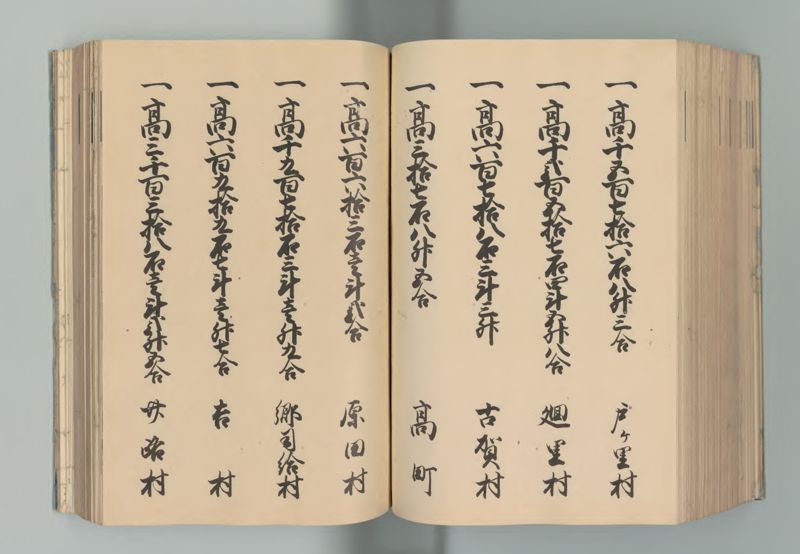 一高千五百七拾六石八升三合 戸ヶ里村
一高千弐百五拾七石四斗五升八合 廻里村
一高六百七拾八石三斗三升 古賀村
一高三拾七石八升五合 高町
一高六百六拾三石壱斗弐合 原田村
一高千九百七拾石三斗壱升九合 郷司給村
一高六百九拾九石七斗壱升七合 村
一高二千百三拾八石壱斗弐升五合 村